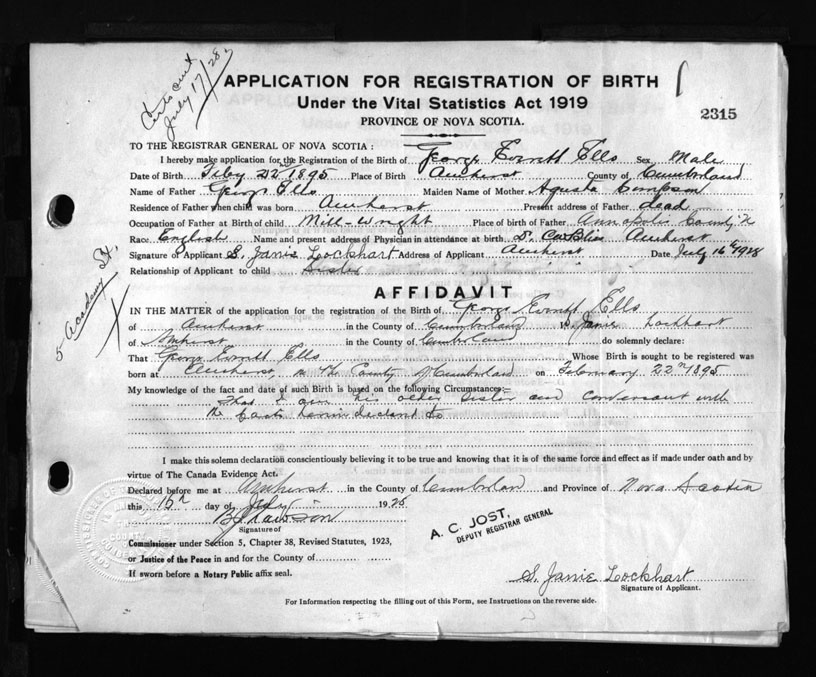 Certs sent
July 17/28
APPLICATION FOR REGISTRATION OF BIRTH
Under the Vital Statistics Act 1919
2315
PROVINCE OF NOVA SCOTIA.
TO THE REGISTRAR GENERAL OF NOVA SCOTIA :
I hereby make application for the Registration of the Birth of George Everett Ells Sex Male
Date of Birth Feby 22nd 1895 Place of Birth Amherst County of Cumberland
Name of Father George Ells Maiden Name of Mother Agusta Simpson
Residence of Father when child was born Amherst Present address of Father dead
Occupation of Father at Birth of child Mill-wright Place of birth of Father Annapolis County
Race English Name and present address of Physician in attendance at birth Dr. Amherst
Signature of Applicant S. Janie Lockhart Address of Applicant Amherst Date July 16th 1928
Relationship of Applicant to child Sister
5 Academy St.
AFFIDAVIT
IN THE MATTER of the application for the registration of the Birth of George Everett Ells
of Amherst in the County of Cumberland S. Janie Lockhart
of Amherst in the County of Cumberland do solemnly declare:
That George Everett Ells Whose Birth is sought to be registered was
born at Amherst, in the County of Cumberland on February 22nd 1895
My knowledge of the fact and date of such Birth is based on the following Circumstances:—
That I am his older sister and conversant with
the facts herein declared to
I make this solemn declaration conscientiously believing it to be true and knowing that it is of the same force and effect as if made under oath and by
virtue of The Canada Evidence Act.
Declared before me at Amherst in the County of Cumberland and Province of Nova Scotia
this 16th day of July 1928
Signature of
A. C. JOST,
DEPUTY REGISTRAR GENERAL
Commissioner under Section 5, Chapter 38, Revised Statutes, 1923,
or Justice of the Peace in and for the County of
If sworn before a Notary Public affix seal.
S. Janie Lockhart
Signature of Applicant.
For Information respecting the filling out of this Form, see Instructions on the reverse side.